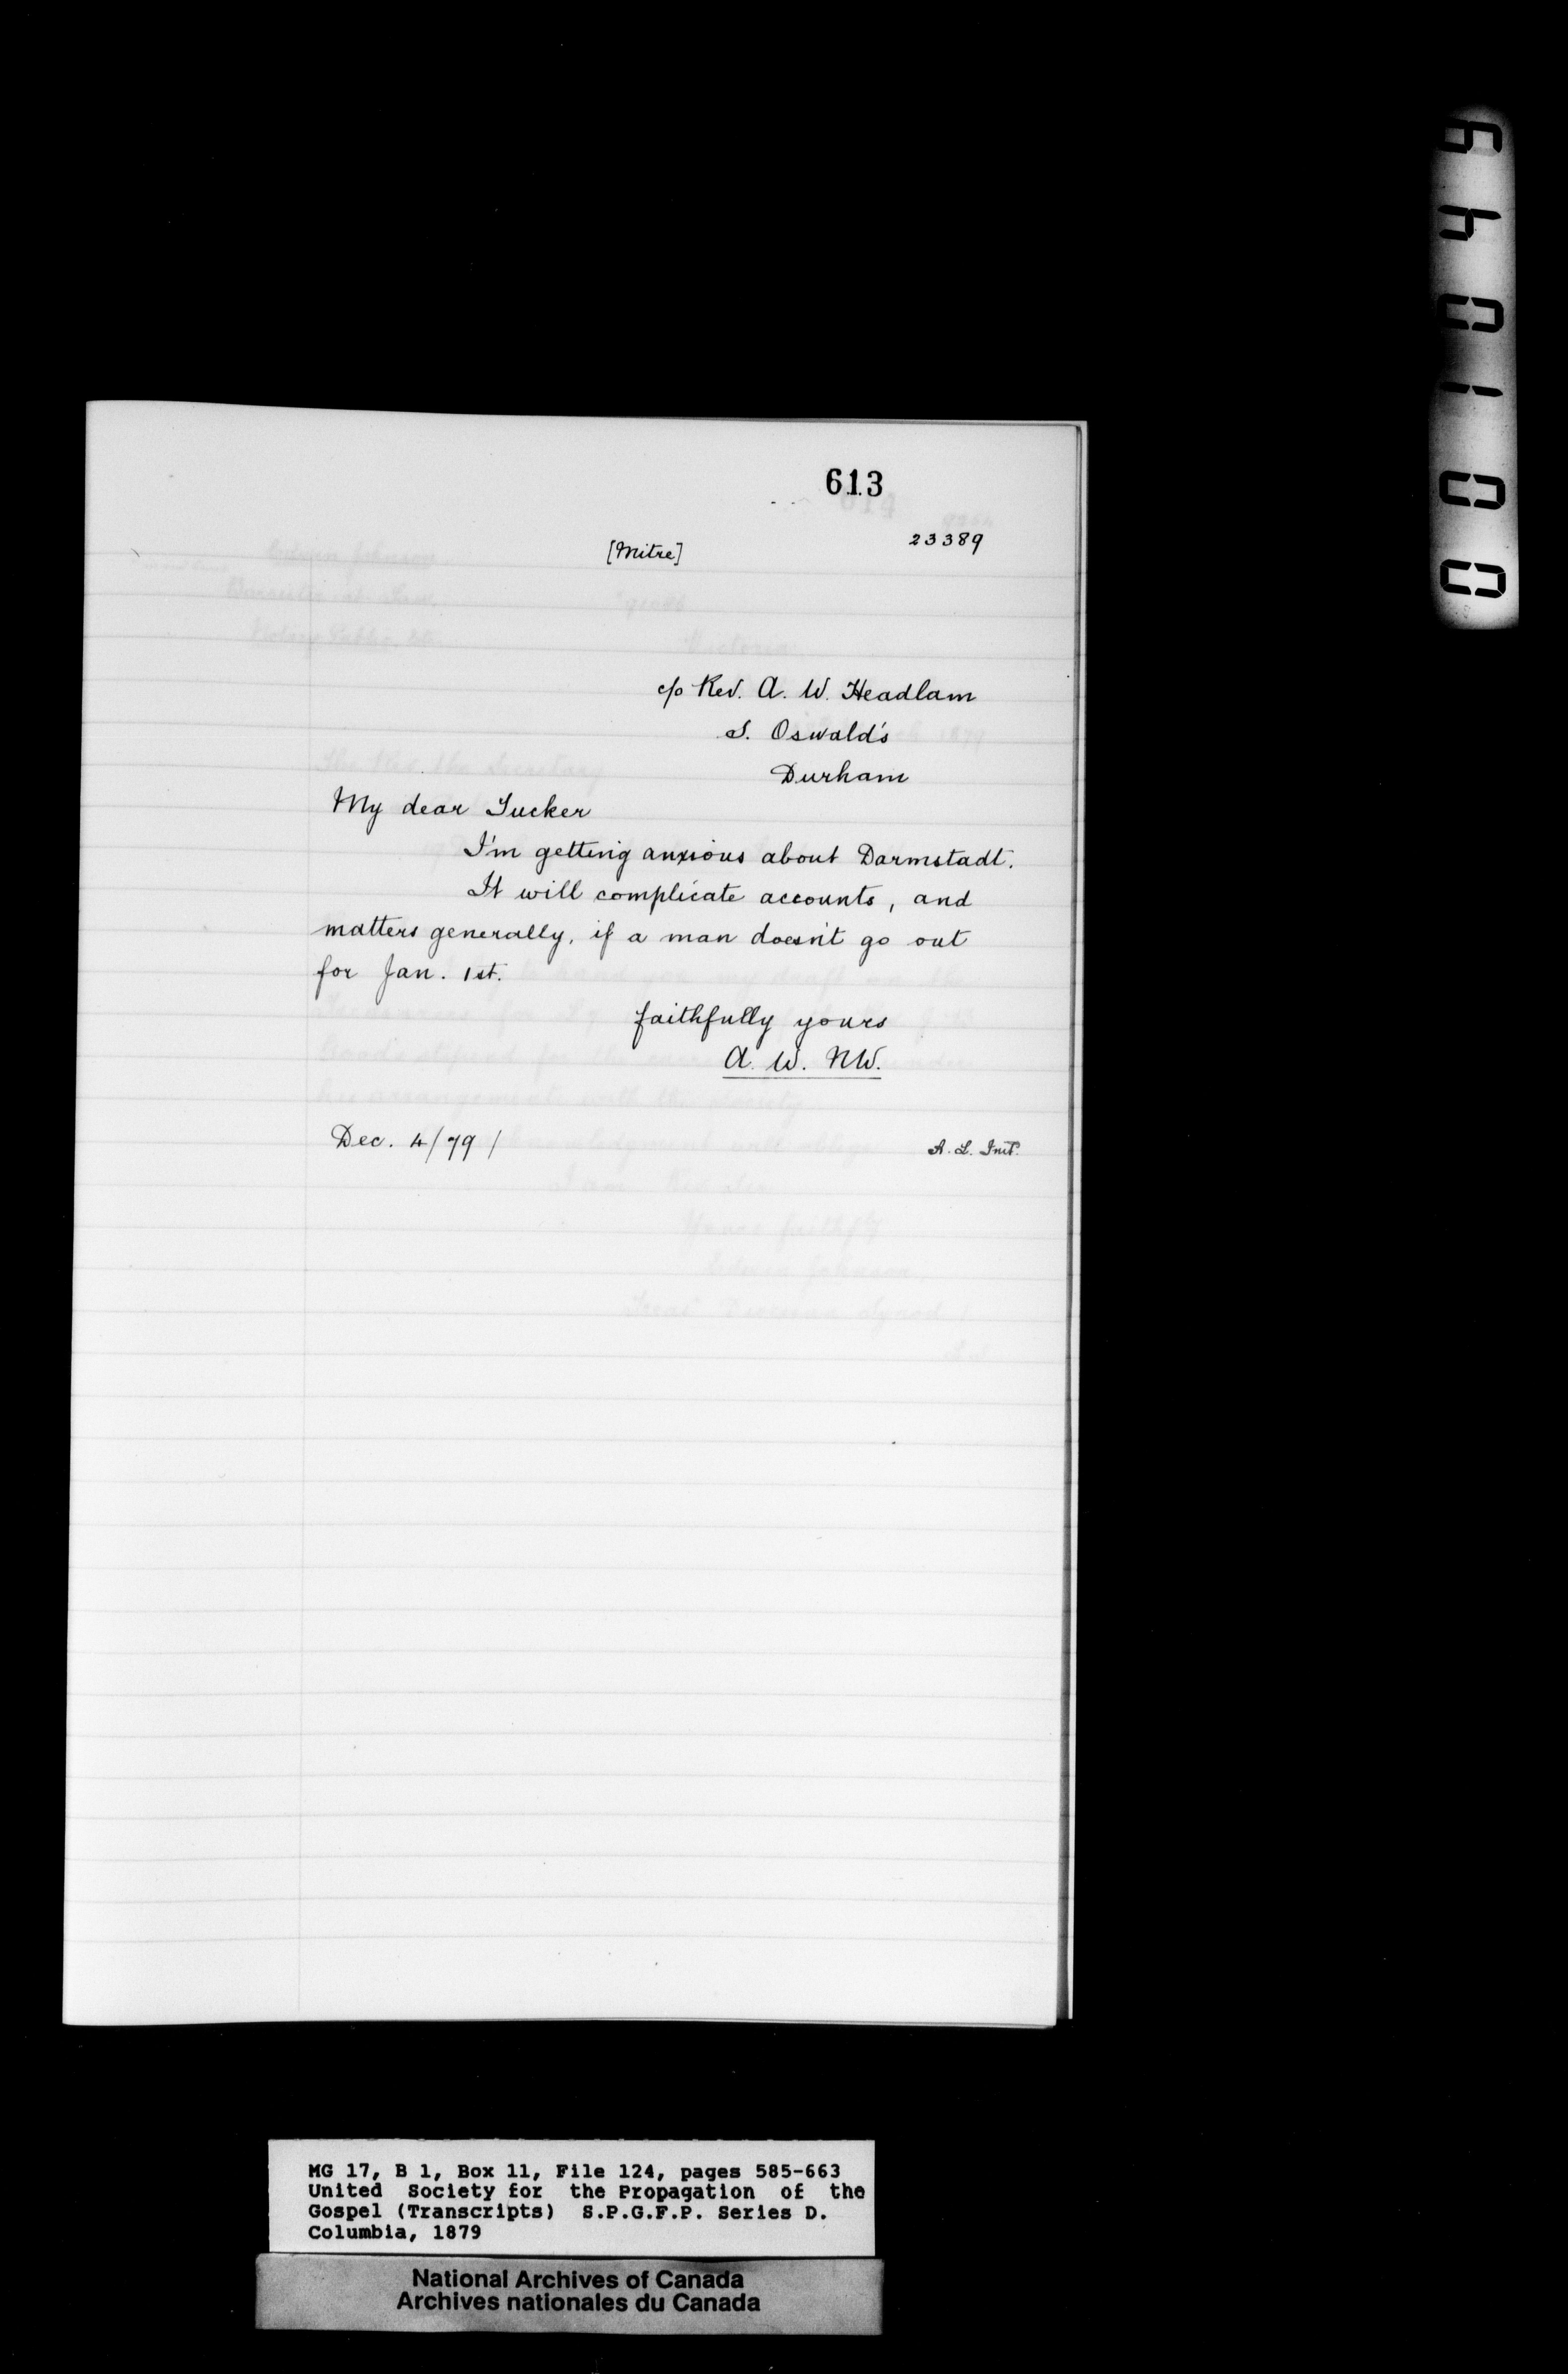 613
23389
[Mitre]
c/o Rev. A. W. Headlam
S. Oswald's
Durham
My dear Tucker
I'm getting anxious about Darmstadt.
It will complicate accounts, and
matters generally, if a man doesn't go out
for Jan. 1st.
faithfully yours
A. W. N.W.
Dec. 4/79/
A. L. Init.
MG 17, B 1, Box 11, File 124, pages 585-663
United Society for the Propagation of the
Gospel (Transcripts) S.P.G.F.P. Series D.
Columbia, 1879
National Archives of Canada
Archives nationales du Canada
001049